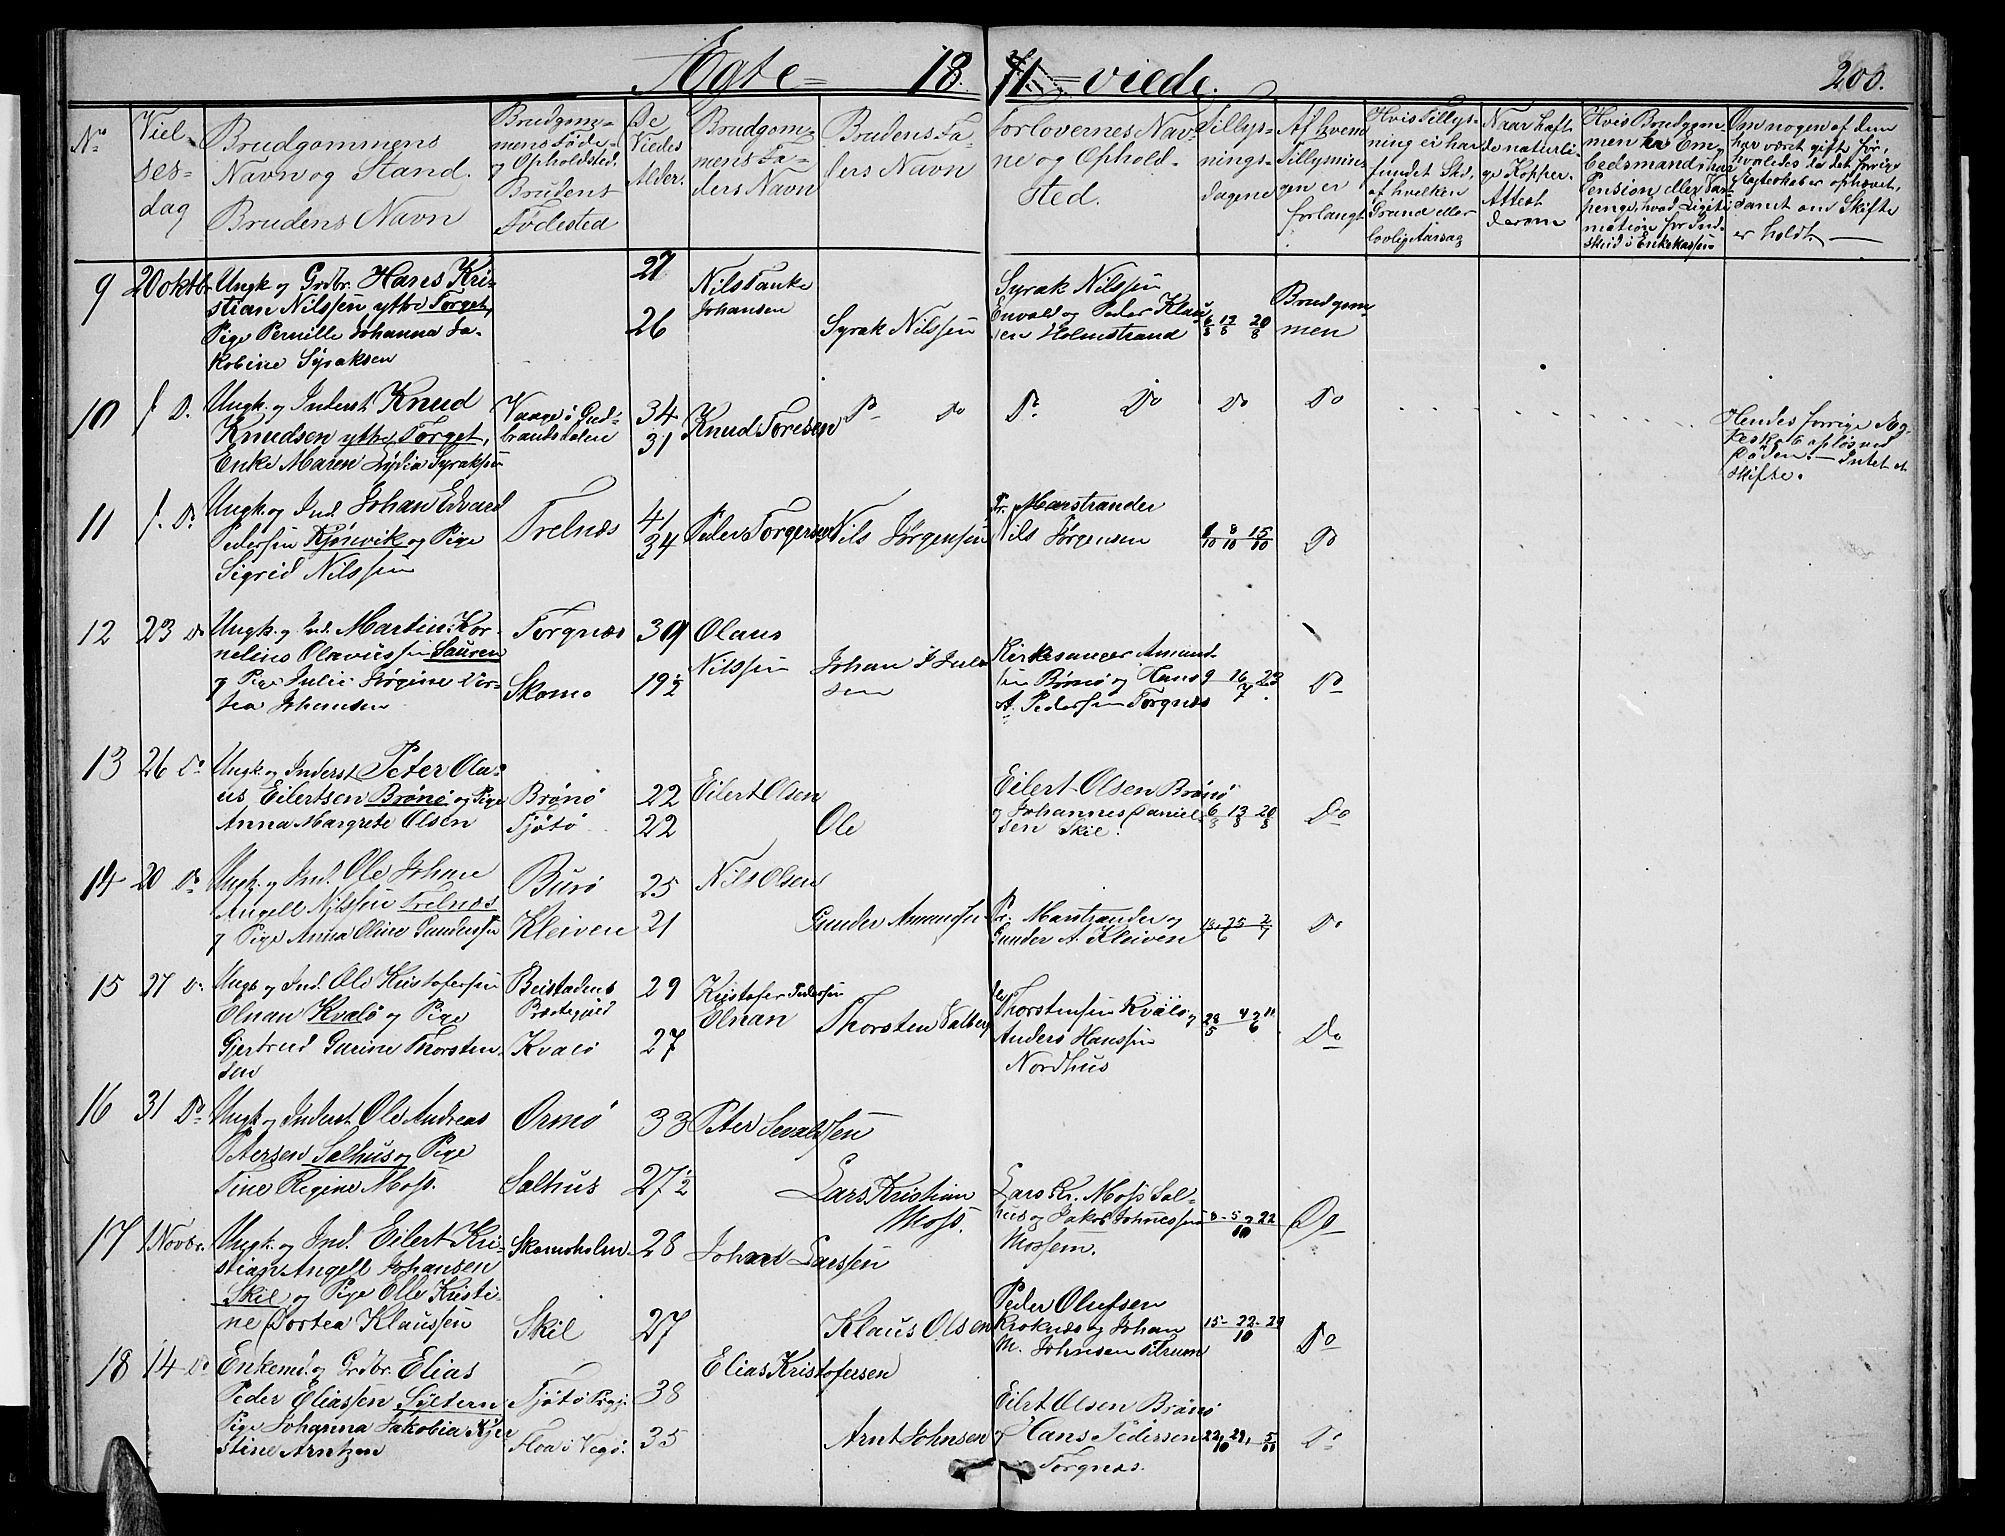 Ægte= 1871=viede.
200.
No
Viel-
ses-
dag
Brudgommens
Navn og Stand.
Brudens Navn
Brudgom-
mens Føde-
og Opholdsted.
Brudens
Fødested
De
Viedes
Alder.
Brudgom-
mens Fa-
ders Navn
Brudens Fa-
ders Navn
Forlovernes Nav-
ne og Ophold-
sted.
Tillys-
nings-
dagene
Af hvem
Tillysnin-
gen er
forlangt
Hvis Tillys-
ning ei har
fundet Sted,
af hvilken
Grund eller
lovlig Aarsag
Naar hafte
de naturli-
ge Kopper.
Attest
derom
Hvis Brudgom-
men er Em-
bedsmand, har
Pension eller Vart-
penge, hvad Ligiti-
mation for Ind-
skud i Enkekassen
Om nogen af dem
har været gift før,
hvorledes da det forrige
Ægteskab er ophævet,
samt om Skifte
er holdt.
9 20 oktb. Ungk og Grdbr. Hans Kri-
stian Nilssen ytre Torget,
Pige Pernille Johanna Ja-
kobine Syraksen
27
26
Nils Tanke
Johansen
Syrak Nilssen
Syrak Nilssen
Envald og Peder Klau-
sen Holmstrand
6/8 13/8 20/8
Brudgom-
men
10 f. D. Ungk. og Inderst Knud
Knudsen ytre Torget,
Enke Maren Lydia Syraksen
Vaage i Gud-
brandsdalen
34
31
Knud Toresen
Do Do Do Do Do Do
Hendes forrige Æg-
teskab opløst ved
Døden. — Intet
skifte.
11 f. Do Ungk og Ind. Johan Edvard
Pedersen Kjønvik og Pige
Sigrid Nilssen
Trelnæs
41
34
Peder Torgersen
Nils Jørgensen
Pr. Marstrander
Nils Jørgensen
1/10 8/10 15/10
Do
12 23 Do Ungk. og Ind. Martin Kor-
nelius Olavussen Sauren
og Pige Julie Jørgine Dor-
tea Johansen
Torgnæs
Skomo
30
19½
Olaus
Nilssen
Johan J
sen
Kirkesanger Amund-
sen Brønø og Hans
A. Pedersen Torgnæs
9 16/7 23
Do
13 26 Do Ungk og Inderst Peter Ola-
us Eilertsen Brønø og Pige
Anna Margrete Olsen
Brønø
Tjøtø
22
22
Eilert Olsen
Ole
Eilert Olsen Brønø
og Johannes Daniel-
sen Skil.
6/8 13/8 20/8
Do
14 20 Do Ungk. og Ind. Ole Johan
Angell Nilssen Trelnæs
og Pige Anna Oline Gundersen
Burø
Kleiven
25
21
Nils Olsen
Gunder Amundsen
Pr. Marstrander og
Gunder A. Kleiven
18, 25/6 2/7
Do
15 27 Do Ungk og Ind. Ole Kristofersen
Elnan Kvalø og Pige
Gjertrud Garine Thorsten-
sen
Beistadens
Præstegjeld
Kvalø
29
27
Kristofer Pedersen
Elnan
Thorsten Valberg
Thorstensen Kvalø og
Anders Hanssen
Nordhus
28/5 4/6 11
Do
16 31 Do Ungk og Inderst Ole Andreas
Petersen Salhus og Pige
Tine Regine Moss.
Ormø
Salhus
33
27½
Peter Sevaldsen
Lars Kristian
Moss.
Lars Kr. Moss Sal-
hus og Jakob Johnessen
Mossem.
8 - 5 22/10
Do
17 1 Novbr. Ungk. og Ind. Eilert Kri-
stian Angell Johansen
Skil og Pige Elle Kristi-
ne Dortea Klaussen
Skomoholm
Skil
28
27
Johan Larssen
Klaus Olsen
Peder Olufsen
Kroknæs og Johan
M. Johnsen Tilrem
15 - 22 - 29/10
Do
18 14 Do Enkemd. og Grdbr. Elias
Peder Eliassen Syltern
Pige Johanna Jakobia Kjer-
stine Arntzen
Tjøtø Prgj.
Floa i Vegø.
38
35
Elias Kristofersen
Arnt Johnsen
Eilert Olsen Brønø
og Hans Pedersen
Torgnæs.
22/10 29, 5/11
Do